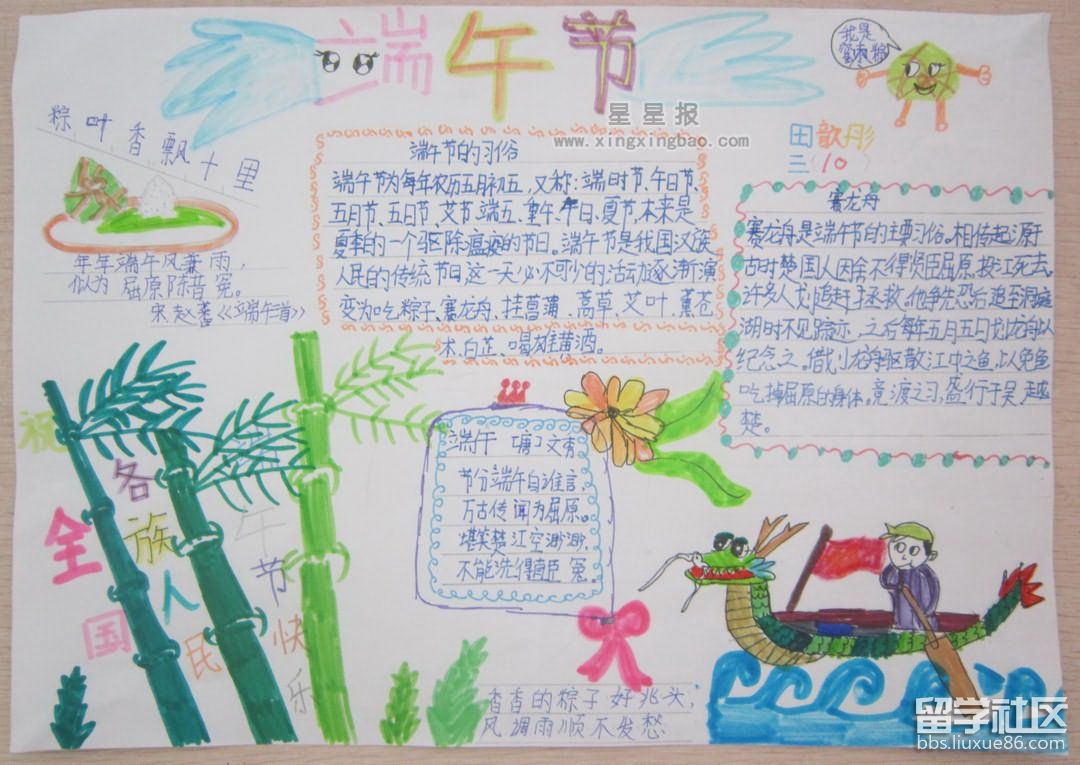 端午节
我是
蜜枣粽
星星报
www.xingxingbao.com
田歆彤
三 10
粽叶香飘十里
年年端午风兼雨,
似为屈原陈昔冤。
宋赵蕃《端午首》
端午节的习俗
端午节为每年农历五月初五,又称:端时节、午日节、
五月节、五日节、艾节、端五、重午、午日、夏节,本来是
夏季的一个驱除瘟疫的节日。端午节是我国汉族
人民的传统节日这一天必不可少的活动逐渐演
变为吃粽子、赛龙舟、挂菖蒲、蒿草、艾叶、薰苍
术、白芷、喝雄黄酒。
赛龙舟
赛龙舟是端午节的主要习俗。相传起源于
古时楚国人因舍不得贤臣屈原投江死去。
许多人划追赶拯救。他争先恐后追至洞庭
湖时不见踪迹。之后每年五月五日划龙舟以
纪念之。借小龙舟驱散江中之鱼,以免鱼
吃掉屈原的身体。竞渡之习,盛行于吴 越
楚。
端午 唐 文秀
节分端午自谁言,
万古传闻为屈原。
堪笑楚江空渺渺,
不能洗得直臣冤。
祝
全国
各族人民
端午节快乐
香香的粽子好兆头,
风调雨顺不发愁
留学社区
bbs.liuxue86.com